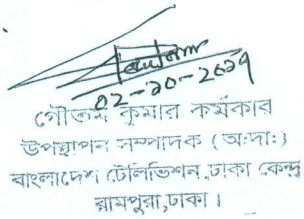 ০২-১০-২০১৭
গৌতম কুমার কর্মকার
উপস্থাপন সম্পাদক (অ:দা:)
বাংলাদেশ টেলিভিশন, ঢাকা কেন্দ্র
রামপুরা, ঢাকা।